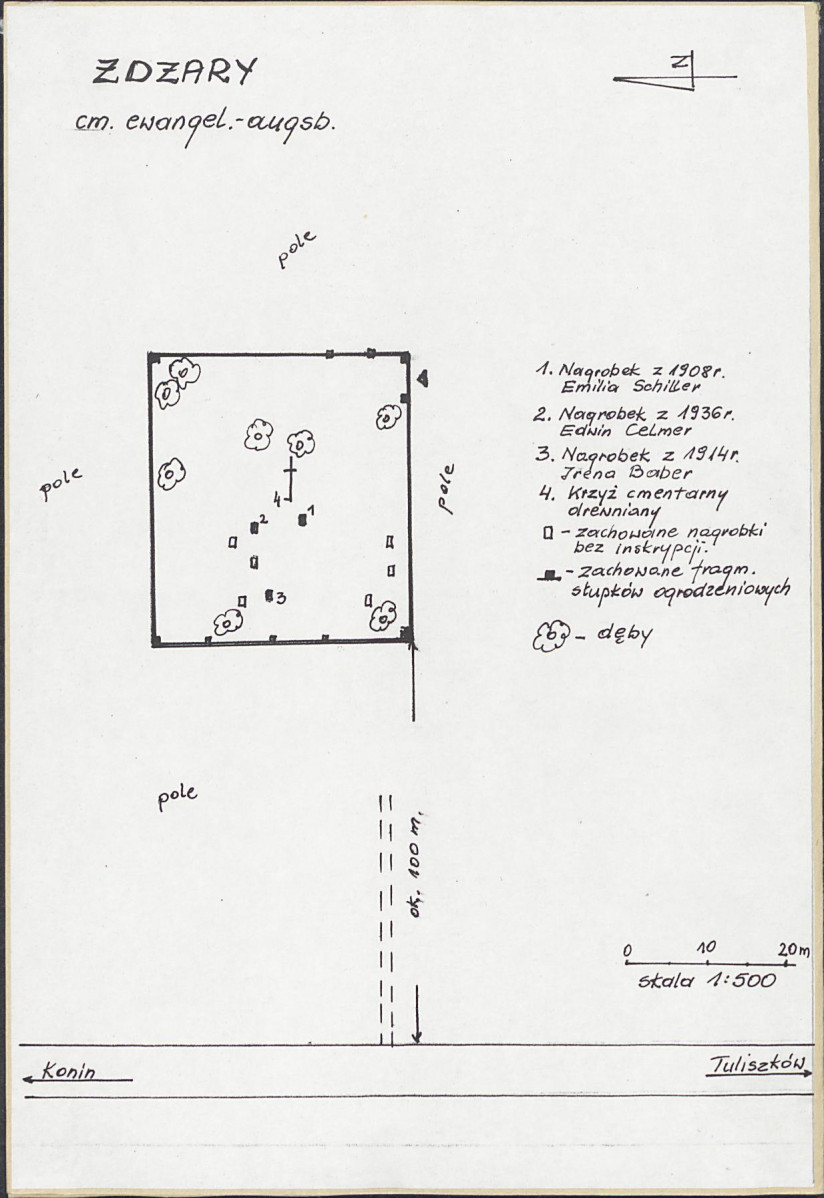 ZDZARY
N
cm. ewangel.-augsb.
pole
1. Nagrobek z 1908r.
Emilia Schiller
2. Nagrobek z 1936r.
Edwin Celmer
3. Nagrobek z 1914r.
Irena Baber
4. Krzyż cmentarny
drewniany
▯ - zachowane nagrobki
bez inskrypcji.
- zachowane fragm.
słupków ogrodzeniowych
- dęby
pole
pole
4
1
2
3
pole
ok. 100 m.
0 10 20m
skala 1:500
Konin
Tuliszków